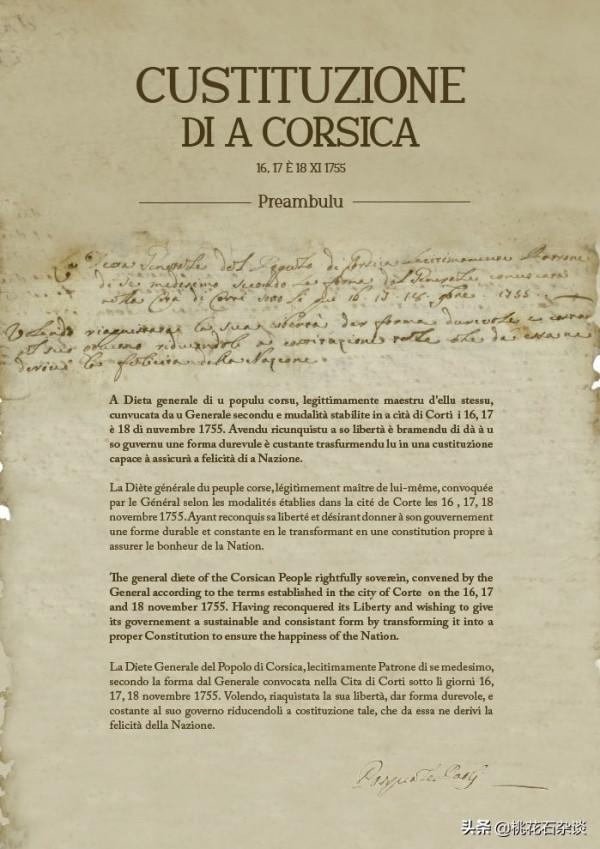 CUSTITUZIONE
DI A CORSICA
16, 17 È 18 XI 1755
Preambulu
La Dieta Generale del Popolo di Corsica lecitimamente Patrone
di se medesimo secondo la forma dal Generale convocata
nella Cità di Corti sotto li 16. 17. 18. 1755
Volendo riaquistata la sua libertà dar forma durevole e
al suo governo riducendoli a costituzione tale che da essa ne
derivi la felicità della Nazione.
A Dieta generale di u populu corsu, legittimamente maestru d'ellu stessu,
cunvucata da u Generale secondu e mudalità stabilite in a cità di Corti i 16, 17
è 18 di nuvembre 1755. Avendu ricunquistu a so libertà è bramendu di dà à u
so guvernu une forma durevule è custante trasfurmendu lu in una custituzione
capace à assicurà a felicità di a Nazione.
La Diète générale du peuple corse, légitimement maître de lui-même, convoquée
par le Général selon les modalités établies dans la cité de Corte les 16 , 17, 18
novembre 1755. Ayant reconquis sa liberté et désirant donner à son gouvernement
une forme durable et constante en le transformant en une constitution propre à
assurer le bonheur de la Nation.
The general diete of the Corsican People rightfully soverein, convened by the
General according to the terms established in the city of Corte on the 16, 17
and 18 november 1755. Having reconquered its Liberty and wishing to give
its governement a sustainable and consistant form by transforming it into a
proper Constitution to ensure the happiness of the Nation.
La Diete Generale del Popolo di Corsica, lecitimamente Patrone di se medesimo,
secondo la forma dal Generale convocata nella Cita di Corti sotto li giorni 16,
17, 18 novembre 1755. Volendo, riaquistata la sua libertà, dar forma durevole, e
costante al suo governo riducendoli a costituzione tale, che da essa ne derivi la
felicità della Nazione.
头条 @桃花石杂谈